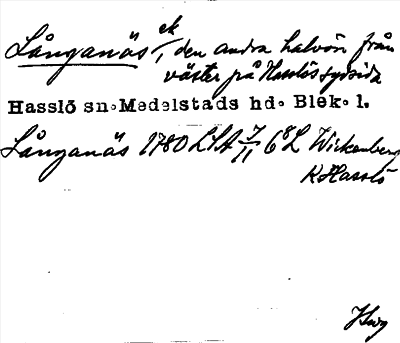 Långanäs ek/1, den andra halvön från
väster på Hasslös sydsida
Hasslö sn. Medelstads hd. Blek. l.
Långanäs 1780 LSA 7/11 68 L Wickenberg
K Hasslö